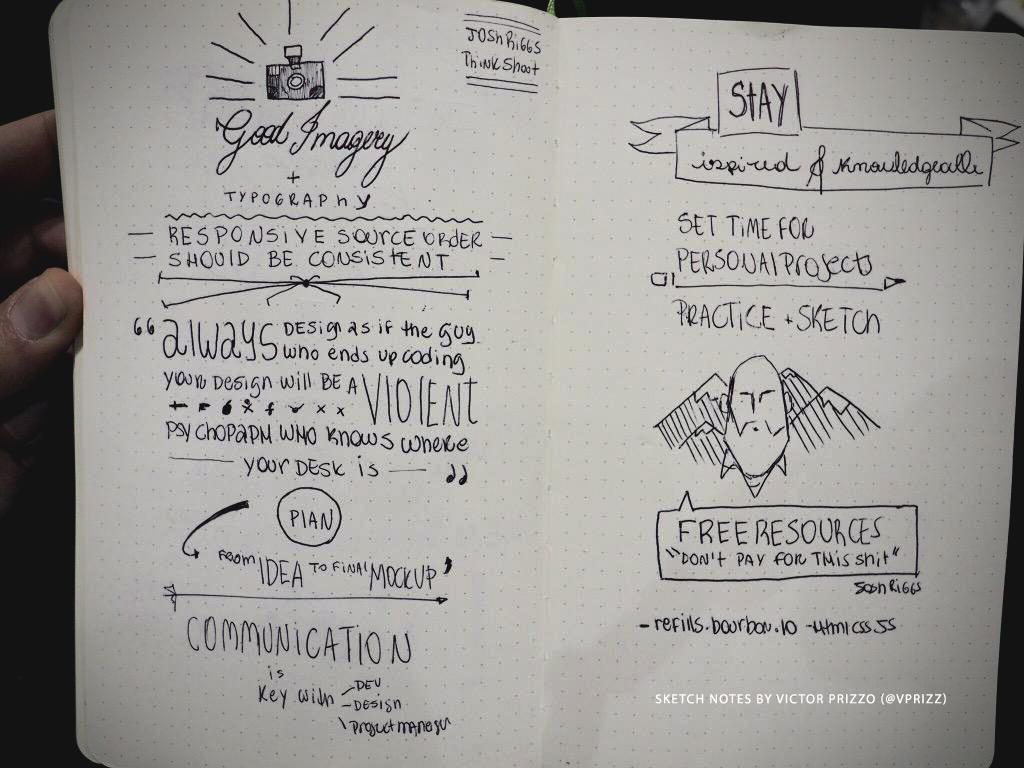 Josh Riggs
Think Shoot
Good Imagery
+
TYPOGRAPHY
— RESPONSIVE SOURCE ORDER —
— SHOULD BE CONSISTENT -
“ always DESIGN as if the guy
who ends up coding
your DESIGN will BE A VIOLENT
PSYCHOPAPH WHO KNOWS WHERE
— YOUR DESK IS — ”
PLAN
FROM IDEA TO FINAL MOCKUP
COMMUNICATION
is
Key with
- DEV
- DESIGN
\ Project manager
STAY
inspired & knowledgeable
SET TIME FOR
PERSONAL Projects
PRACTICE + SKETCH
FREE RESOURCES
"DON'T PAY FOR THIS shit"
Josh Riggs
- refills.bourbon.io - Htmlcss.js
SKETCH NOTES BY VICTOR PRIZZO (@VPRIZZ)